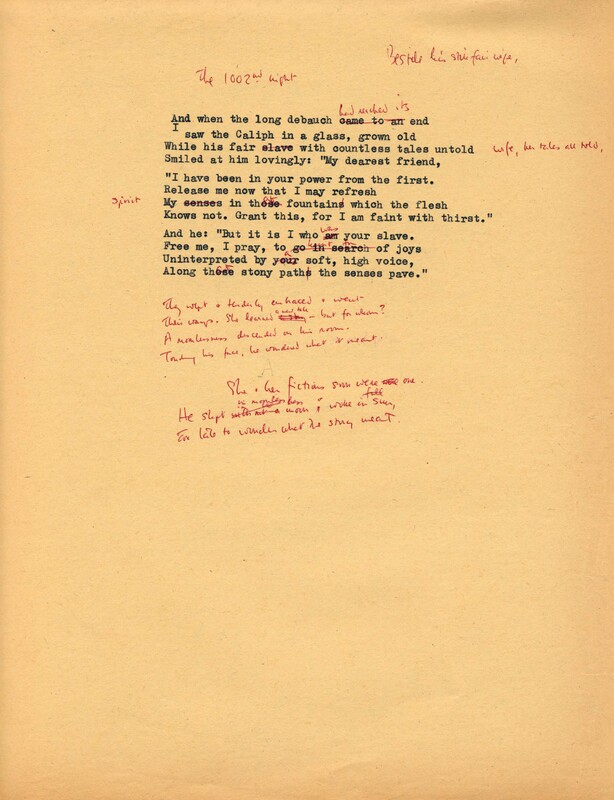 Beside his still fair wife,
The 1002nd night
had reached its
And when the long debauch came to an end
I saw the Caliph in a glass, grown old
While his fair slave with countless tales untold wife, her tales all told,
Smiled at him lovingly: "My dearest friend,
"I have been in your power from the first.
Release me now that I may refresh
Spirit My senses in those fountains which the flesh
Knows not. Grant this, for I am faint with thirst."
And he: "But it is I who am your slave.
was
Free me, I pray, to go in search of joys
Uninterpreted by your soft, high voice,
Along those stony paths the senses pave."
They wept & tenderly embraced & went
Their ways. She learned — but for whom?
A moonlessness descended on his room.
Touching his face, he wondered what it meant.
She & her fictions soon were one.
in moonlessness
He slept without a moon & woke in sun,
full
Too late to wonder what the story meant.